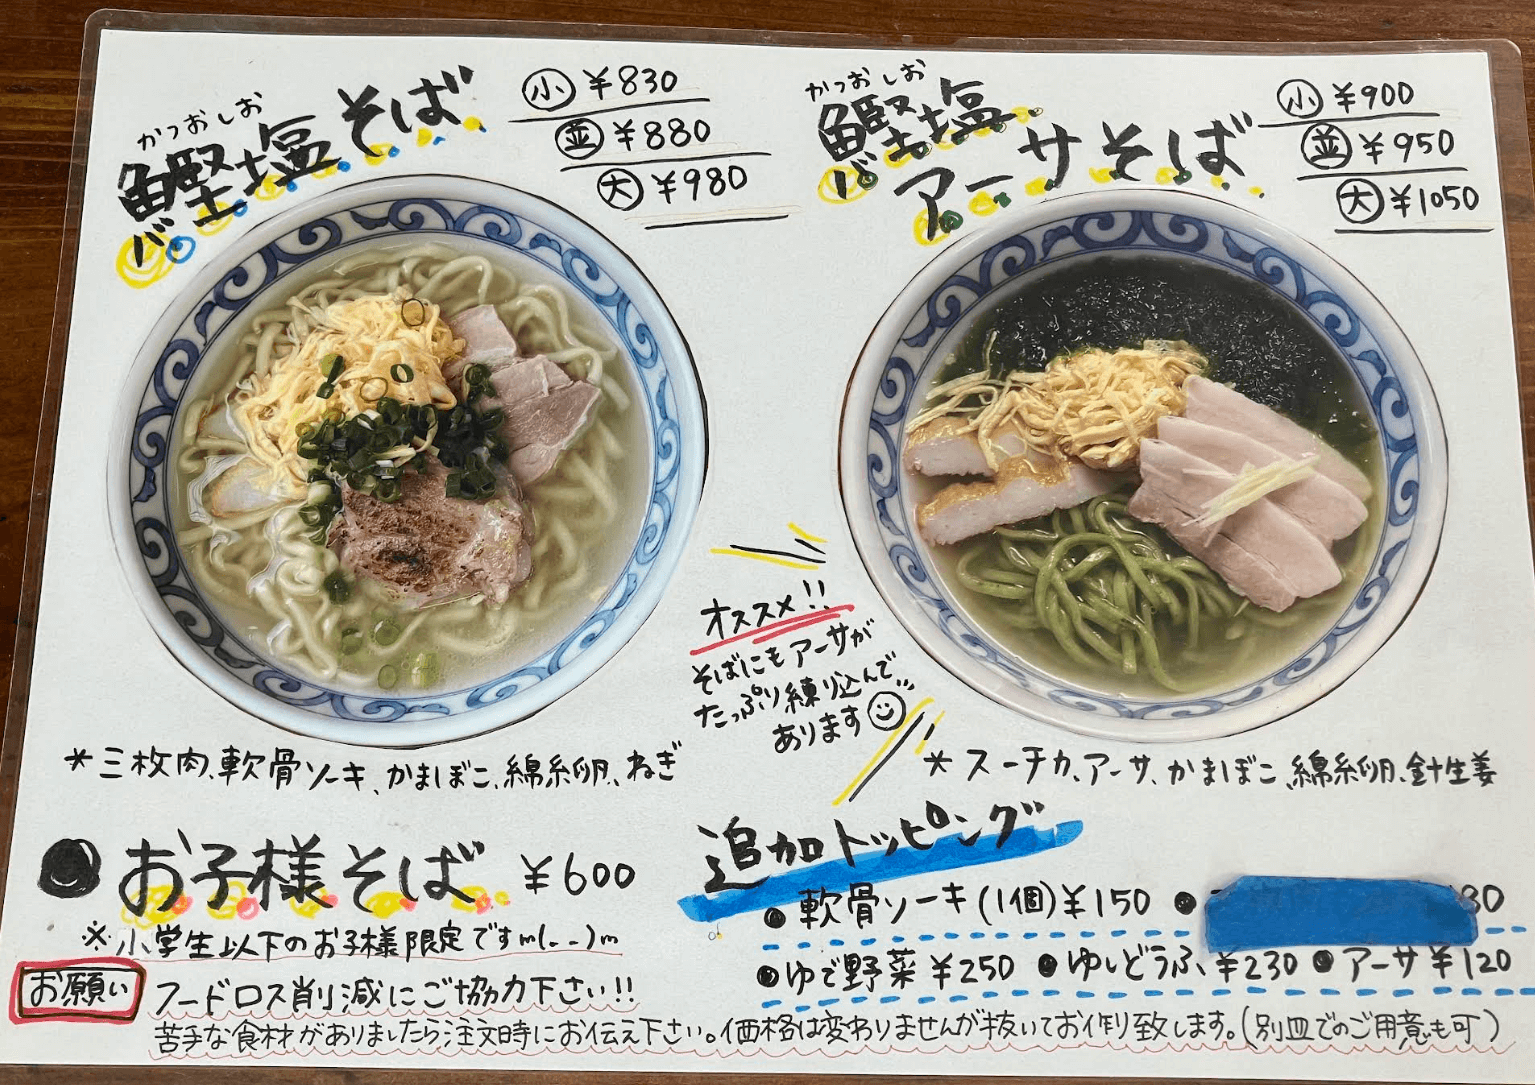 かつおしお
鰹塩そば
小 ¥830
並 ¥880
大 ¥980
かつおしお
鰹塩
アーサそば
小 ¥900
並 ¥950
大 ¥1050
オススメ!!
そばにもアーサが
たっぷり練り込んで…
あります
*三枚肉、軟骨ソーキ、かまぼこ、綿糸卵、ねぎ
*スーチカ、アーサ、かまぼこ、綿糸卵、針生姜
●お子様そば ¥600
※小学生以下のお子様限定ですm(..)m
追加トッピング
●軟骨ソーキ(1個)¥150 ●
●ゆで野菜 ¥250 ●ゆしどうふ ¥230 ●アーサ ¥120
お願い フードロス削減にご協力下さい!!
苦手な食材がありましたら注文時にお伝え下さい。価格は変わりませんが抜いてお作り致します。(別皿でのご用意も可)